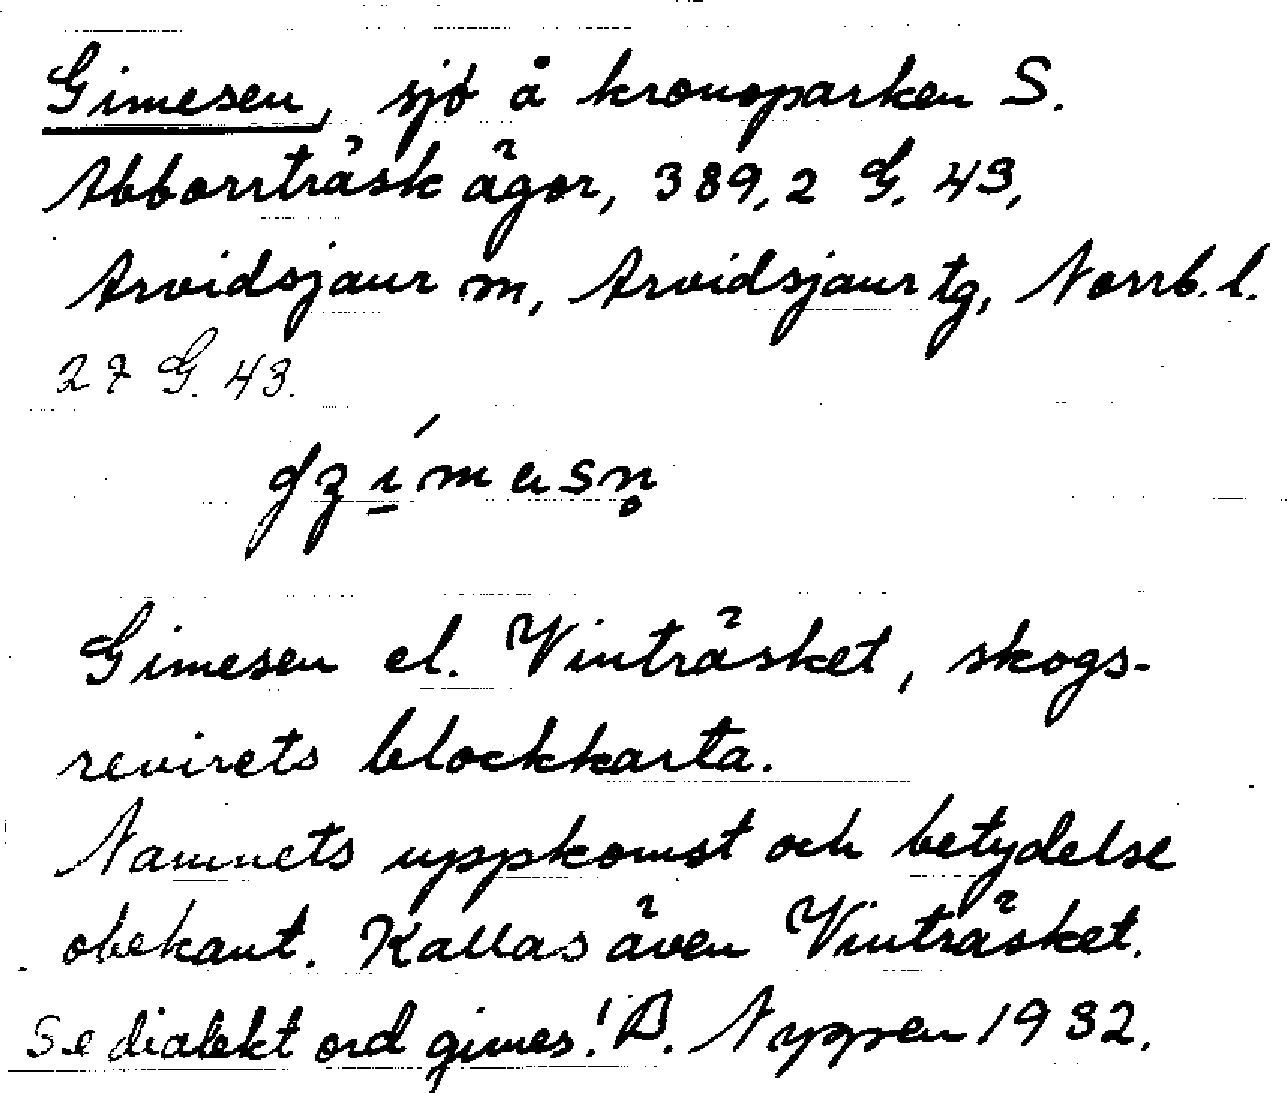 Gimesen, sjö å kronoparken S.
Abborrträsk ägor, 389,2 G. 43,
Arvidsjaur m, Arvidsjaur tg, Norrb. l.
27 G. 43.
Gimesen el. Vinträsket, skogs-
revirets blockkarta.
Namnets uppkomst och betydelse
obekant. Kallas även Vinträsket.
Se dialekt ord gimes! B. Nyppen 1932.